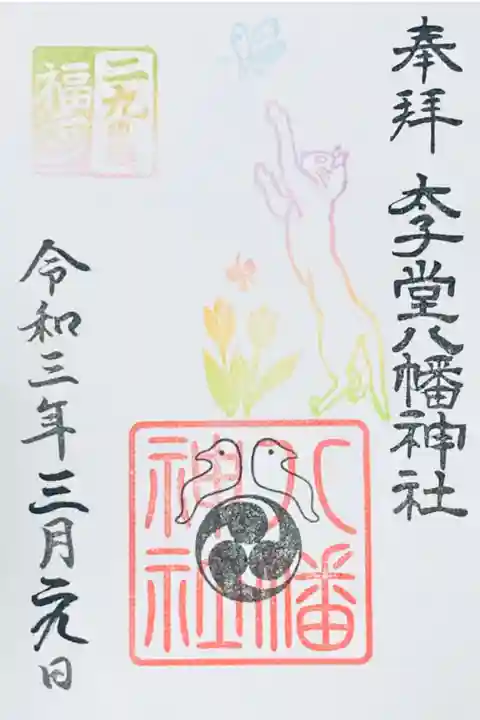 奉拝 太子堂八幡神社
八幡
神社
二九
福
令和三年三月二九日